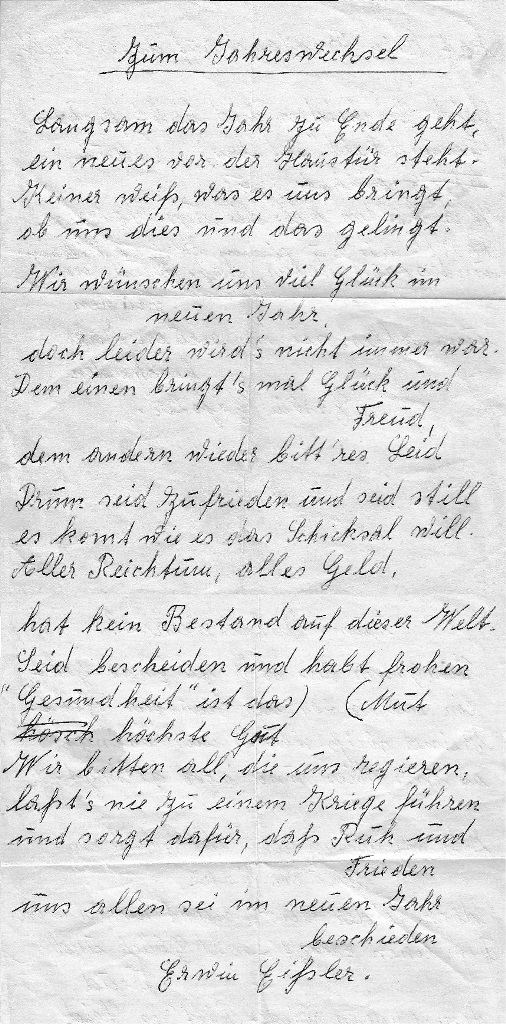 Zum Jahreswechsel
Langsam das Jahr zu Ende geht,
ein neues vor der Haustür steht.
Keiner weiß, was es uns bringt,
ob uns dies und das gelingt.
Wir wünschen uns viel Glück im
neuen Jahr,
doch leider wird's nicht immer war.
Dem einen bringt's mal Glück und
Freud,
dem andern wieder bitt'res Leid
Drum seid zufrieden und seid still
es komt wie es das Schicksal will.
Aller Reichtum, alles Geld,
hat kein Bestand auf dieser Welt.
Seid bescheiden und habt frohen
"Gesundheit" ist das) (Mut
hösch höchste Gut
Wir bitten all, die uns regieren,
laßt's nie zu einem Kriege führen
und sorgt dafür, daß Ruh und
Frieden
uns allen sei im neuen Jahr
beschieden
Erwin Eißler.